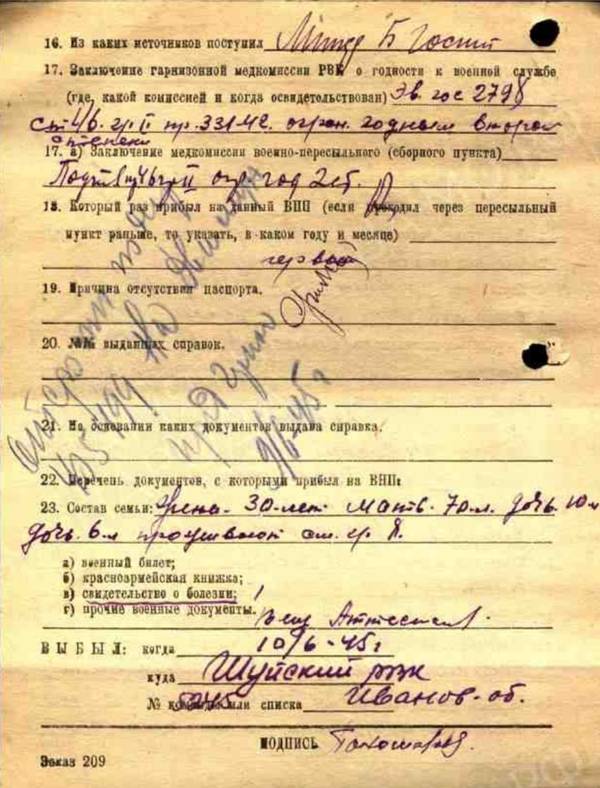 16. Из каких источников поступил
17. Заключение гарнизонной медкомиссии РВК о годности к военной службе
(где, какой комиссией и когда освидетельствован) Эв. гос 2798
ст 46. гр II пр. 331-42. огран. годным второй
степени
17. а) Заключение медкомиссии военно-пересыльного (сборного пункта)
II огр. год 2 ст.
18. Который раз прибыл на данный ВПП (если проходил через пересыльный
пункт раньше, то указать, в каком году и месяце)
первый
19. Причина отсутствия паспорта.
20. №№ выданных справок.
21. На основании каких документов выдана справка.
9/6-45г
22. Перечень документов, с которыми прибыл на ВПП:
23. Состав семьи: жена - 30-лет мать. 70-л. дочь. 10-л
дочь. 6-л проживают см. гр 8.
а) военный билет;
б) красноармейская книжка;
в) свидетельство о болезни; 1
г) прочие военные документы. вещ Аттестат.
ВЫБЫЛ: когда 10/6-45г
куда Шуйский рвк
№ команды или списка 5245 Иванов-об.
ПОДПИСЬ
Заказ 209